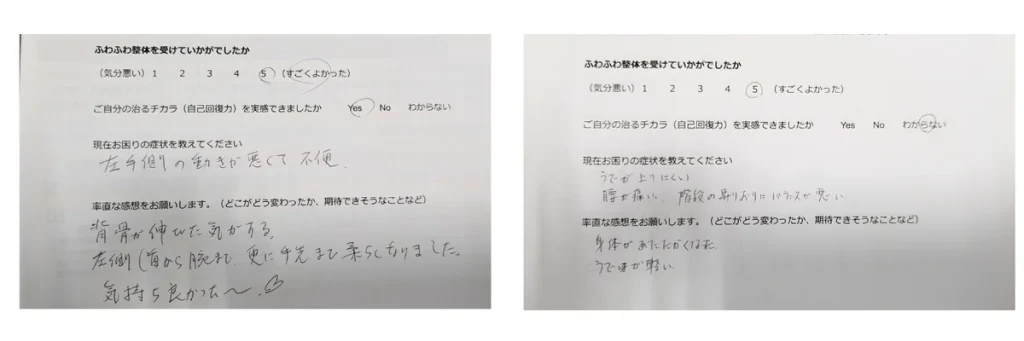 ふわふわ整体を受けていかがでしたか
(気分悪い) 1 2 3 4 5 (すごくよかった)
ご自分の治るチカラ(自己回復力)を実感できましたか Yes No わからない
現在お困りの症状を教えてください
左手側の動きが悪くて不便.
率直な感想をお願いします。(どこがどう変わったか、期待できそうなことなど)
背骨が伸びた気がする,
左側(首から腕まで、更に手先まで柔らくなりました。
気持ち良かった〜.
ふわふわ整体を受けていかがでしたか
(気分悪い) 1 2 3 4 5 (すごくよかった)
ご自分の治るチカラ(自己回復力)を実感できましたか Yes No わからない
現在お困りの症状を教えてください
うでが上りにくい
腰が痛い、階段の昇りおりにバランスが悪い
率直な感想をお願いします。(どこがどう変わったか、期待できそうなことなど)
身体があたたかくなた
うでが軽い